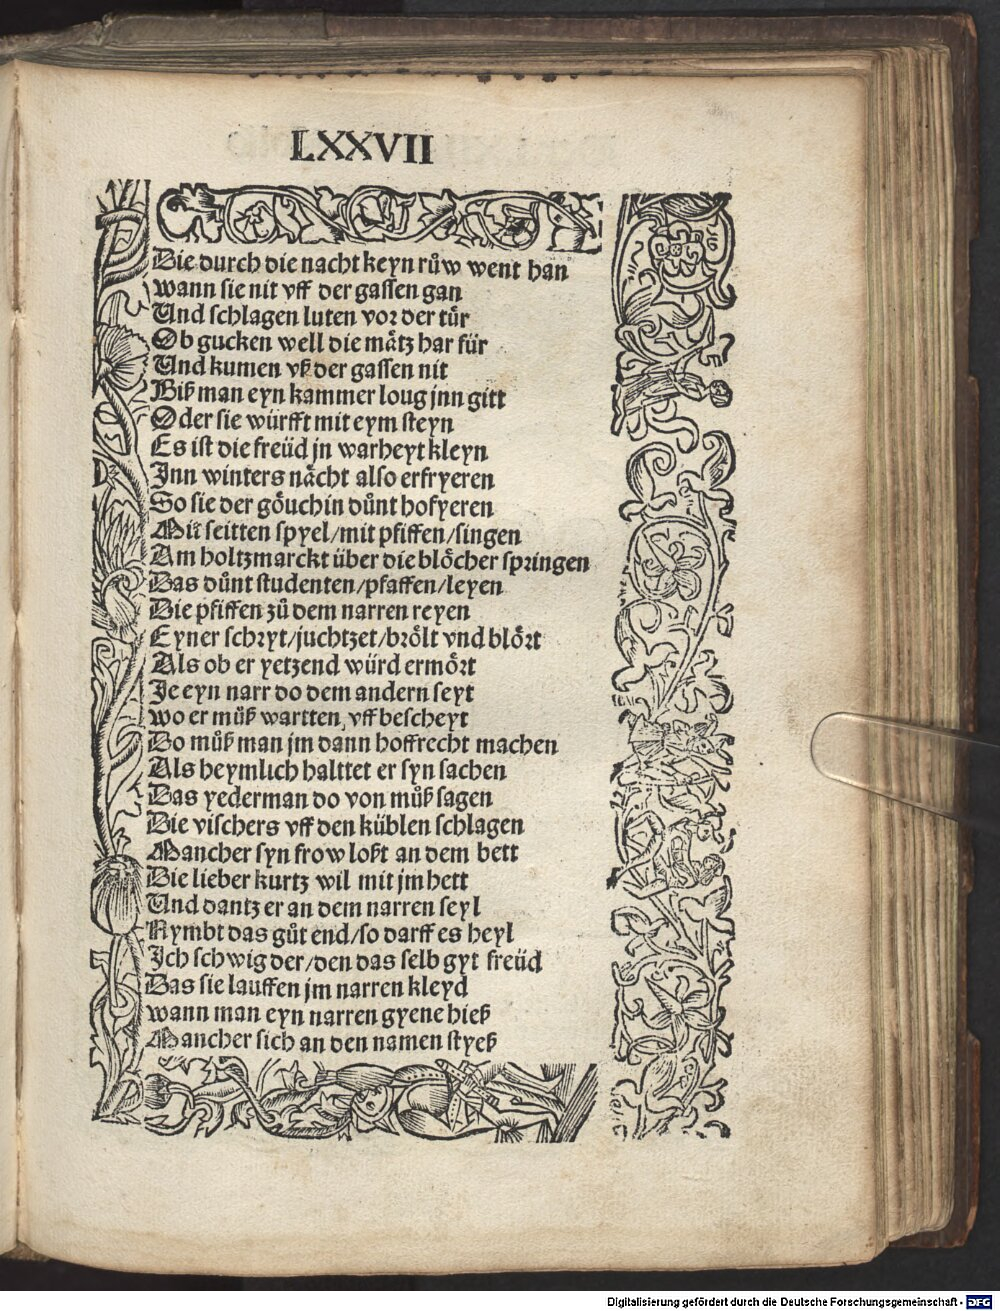 LXXVII
Die durch die nacht keyn růw went han
wann sie nit vff der gassen gan
Und schlagen luten vor der tür
Ob gucken well die mätz har für
Und kumen vß der gassen nit
Biß man eyn kammer loug jnn gitt
Oder sie würfft mit eym steyn
Es ist die freüd jn warheyt kleyn
Inn winters nächt also erfryeren
So sie der göuchin důnt hofyeren
Mit seitten spyel/mit pfiffen/singen
Am holtzmarckt über die blöcher springen
Das důnt studenten/pfaffen/leyen
Die pfiffen zů dem narren reyen
Eyner schryt/juchtzet/brölt vnd blört
Als ob er yetzend würd ermört
Je eyn narr do dem andern seyt
wo er můß wartten, vff bescheyt
Do můß man jm dann hoffrecht machen
Als heymlich halttet er syn sachen
Das yederman do von můß sagen
Die vischers vff den küblen schlagen
Mancher syn frow loßt an dem bett
Die lieber kurtz wil mit jm hett
Und dantz er an dem narren seyl
Nymbt das gůt end/so darff es heyl
Ich schwig der/den das selb gyt freüd
Das sie lauffen jm narren kleyd
wann man eyn narren gyene hieß
Mancher sich an den namen styeß
Digitalisierung gefördert durch die Deutsche Forschungsgemeinschaft - DFG